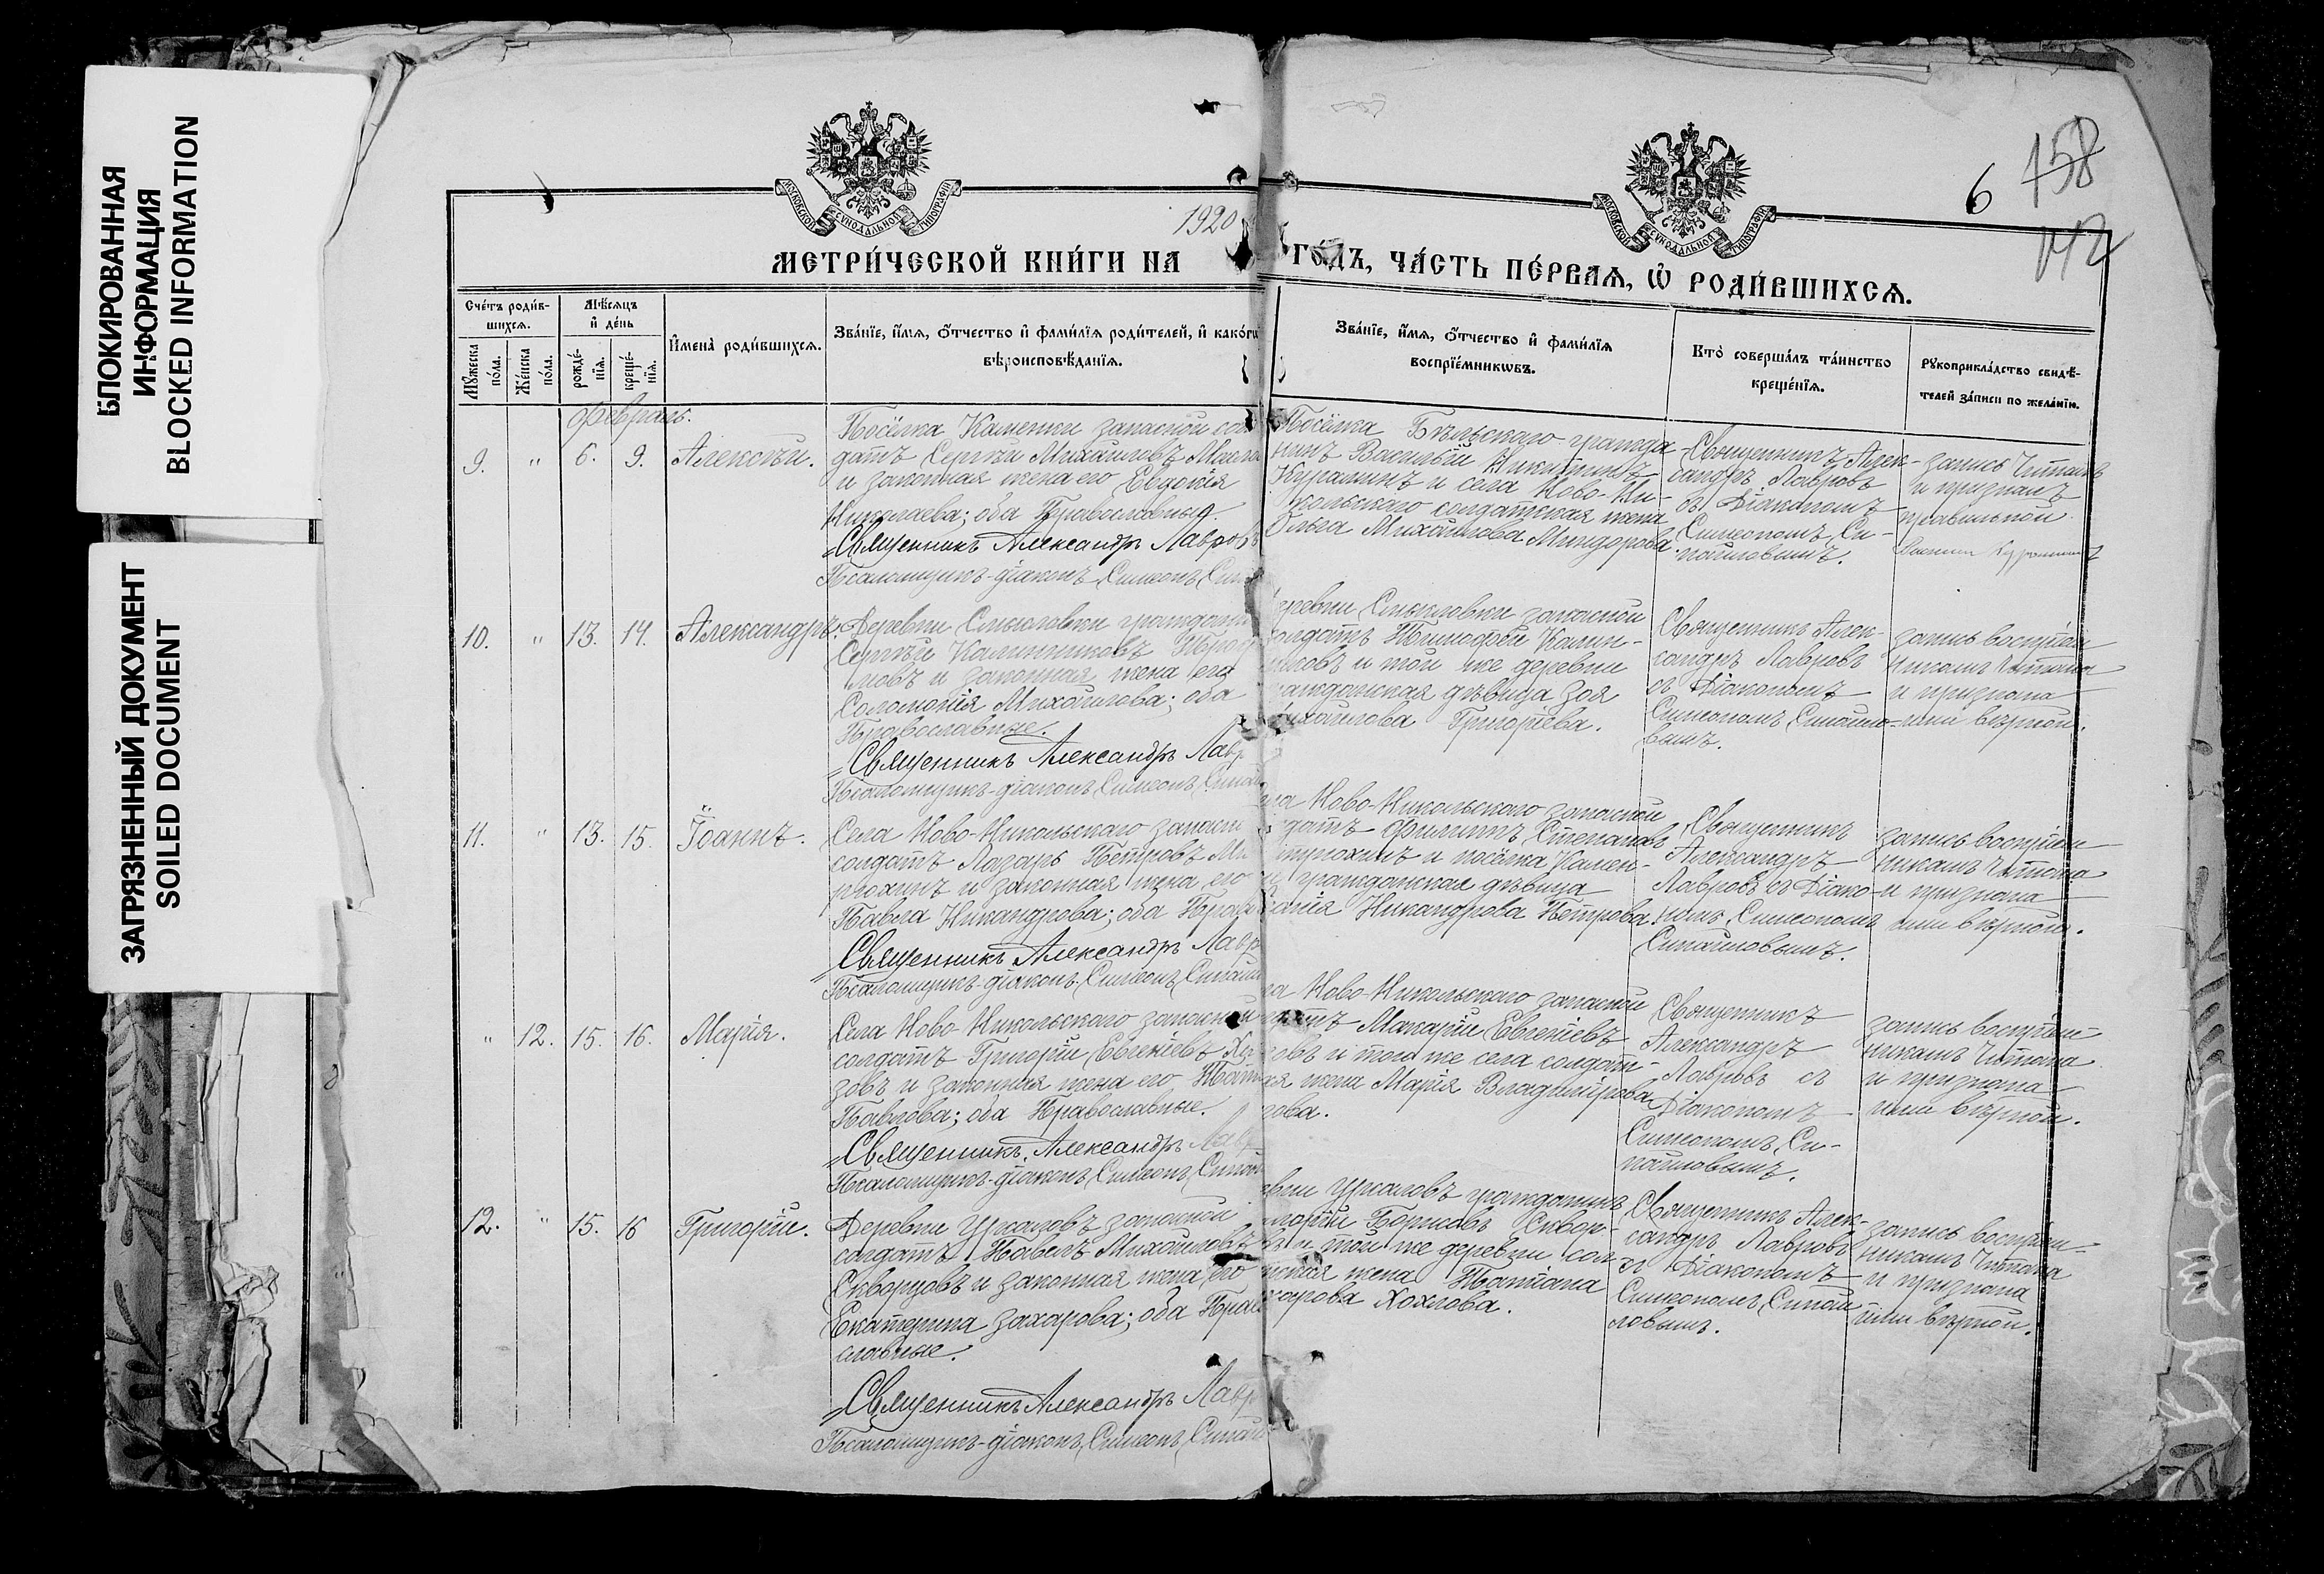 БЛОКИРОВАННАЯ
ИНФОРМАЦИЯ
BLOCKED INFORMATION
ЗАГРЯЗНЕННЫЙ ДОКУМЕНТ
SOILED DOCUMENT
6
158
142
МОСКОВСКОЙ СѴНОДАЛЬНОЙ ТИПОГРАФІИ
МОСКОВСКОЙ СѴНОДАЛЬНОЙ ТИПОГРАФІИ
1920
МЕТРИ́ЧЕСКОЙ КНИ́ГИ НА
ГО́ДЪ, ЧА́СТЬ ПЕ́РВАѦ, Ѽ РОДИ́ВШИХСѦ.
Сче́тъ роди́в-
шихсѧ.
Мꙋ́жеска
по́ла.
Же́нска
по́ла.
Мѣ́сѧцъ
и҆ де́нь
рожде́-
нїѧ.
креще́-
нїѧ.
И҆мена̀ роди́вшихсѧ.
Зва́нїе, и҆́мѧ, ѻ҆́тчество и҆ фами́лїѧ роди́телей, и҆ како́гѡ
вѣроисповѣ́данїѧ.
Зва́нїе, и҆́мѧ, ѻ҆́тчество и҆ фами́лїѧ
воспрїе́мникѡвъ.
Кто̀ соверша́лъ та́инство
креще́нїѧ.
Рꙋкоприкла́дство свидѣ́-
телей за́писи по жела́нїю.
Февраль.
9.
"
6.
9.
Алексѣй.
Посёлка Каменки запасной сол
датъ Сергѣй Михайловъ
и законная жена его Евдокія
Николаева; оба Православные.
Священникъ Александръ Лавровъ
Псаломщикъ-діаконъ Симеонъ
Посёлка Бѣльскаго гражда
нинъ Василій Никитинъ
Курамшинъ и села Ново-Ни-
кольскаго солдатская жена
Ольга Михайлова Миндорова.
Священникъ Алек-
сандръ Лавровъ
съ Діакономъ
Симеономъ Си-
пайловымъ.
запись читалъ
и призналъ
правильной
10.
"
13.
14.
Александръ.
Деревни Смысловки гражданин
Сергѣй Калинниковъ
и законная жена его
Соломонія Михайлова; оба
Православные.
Священникъ Александръ Лавр
Псаломщикъ-діаконъ Симеонъ
деревни Смысловки запасной
солдатъ Тимофей Калин-
никовъ и той же деревни
гражданская дѣвица Зоя
Михайлова Григорьева.
Священникъ Алек-
сандръ Лавровъ
съ Діакономъ
Симеономъ Сипайло-
вымъ.
запись воспріем
никамъ читана
и признана
ими вѣрной.
11.
"
13.
15.
Іоаннъ.
Села Ново-Никольскаго запасн
солдатъ Лазарь Петровъ Ми
рюхинъ и законная жена его
Павла Никандрова; оба Прав
Священникъ Александръ Лавр
Псаломщикъ-діаконъ Симеонъ Сипайл
ла Ново-Никольскаго запасной
датъ Филиппъ Степановъ
и посёлка Камен-
гражданская дѣвица
Никандрова Петрова.
Священникъ
Александръ
Лавровъ съ Діако-
номъ Симеономъ
Сипайловымъ.
запись воспріем
никамъ читана
и признана
ими вѣрной.
"
12.
15.
16.
Марія.
Села Ново-Никольскаго запасной
солдатъ Григорій Евгеніевъ
зовъ и законная жена его
Павлова; оба Православные.
Священникъ Александръ Лавр
Псаломщикъ-діаконъ Симеонъ Сипай
ла Ново-Никольскаго запасной
датъ Макарій Евгеніевъ
и того же села солдат-
ая жена Марія Владимірова
Священникъ
Александръ
Лавровъ съ
Діакономъ
Симеономъ Си-
пайловымъ.
запись воспріем-
никамъ читана
и признана
ими вѣрной.
12.
"
15.
16
Григорій.
Деревни Уркаловъ запасной
солдатъ Павелъ Михайловъ
Скворцовъ и законная жена его
Екатерина Захарова; оба Право
славные.
Священникъ Александръ Лавр
Псаломщикъ-діаконъ Симеонъ Сипай
вни Уркаловъ гражданинъ
горій Борисовъ Сквор-
и той же деревни сол
ская жена Татіана
харова Хохлова.
Священникъ Алек-
сандръ Лавровъ
съ Діакономъ
Симеономъ Сипай
ловымъ.
запись воспріем-
никамъ читана
и признана
ими вѣрной.